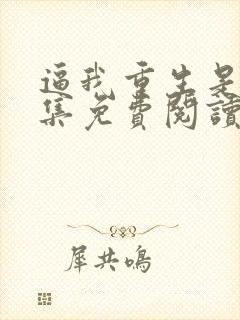 逼我重生是
集免費閱讀
犀共鳴